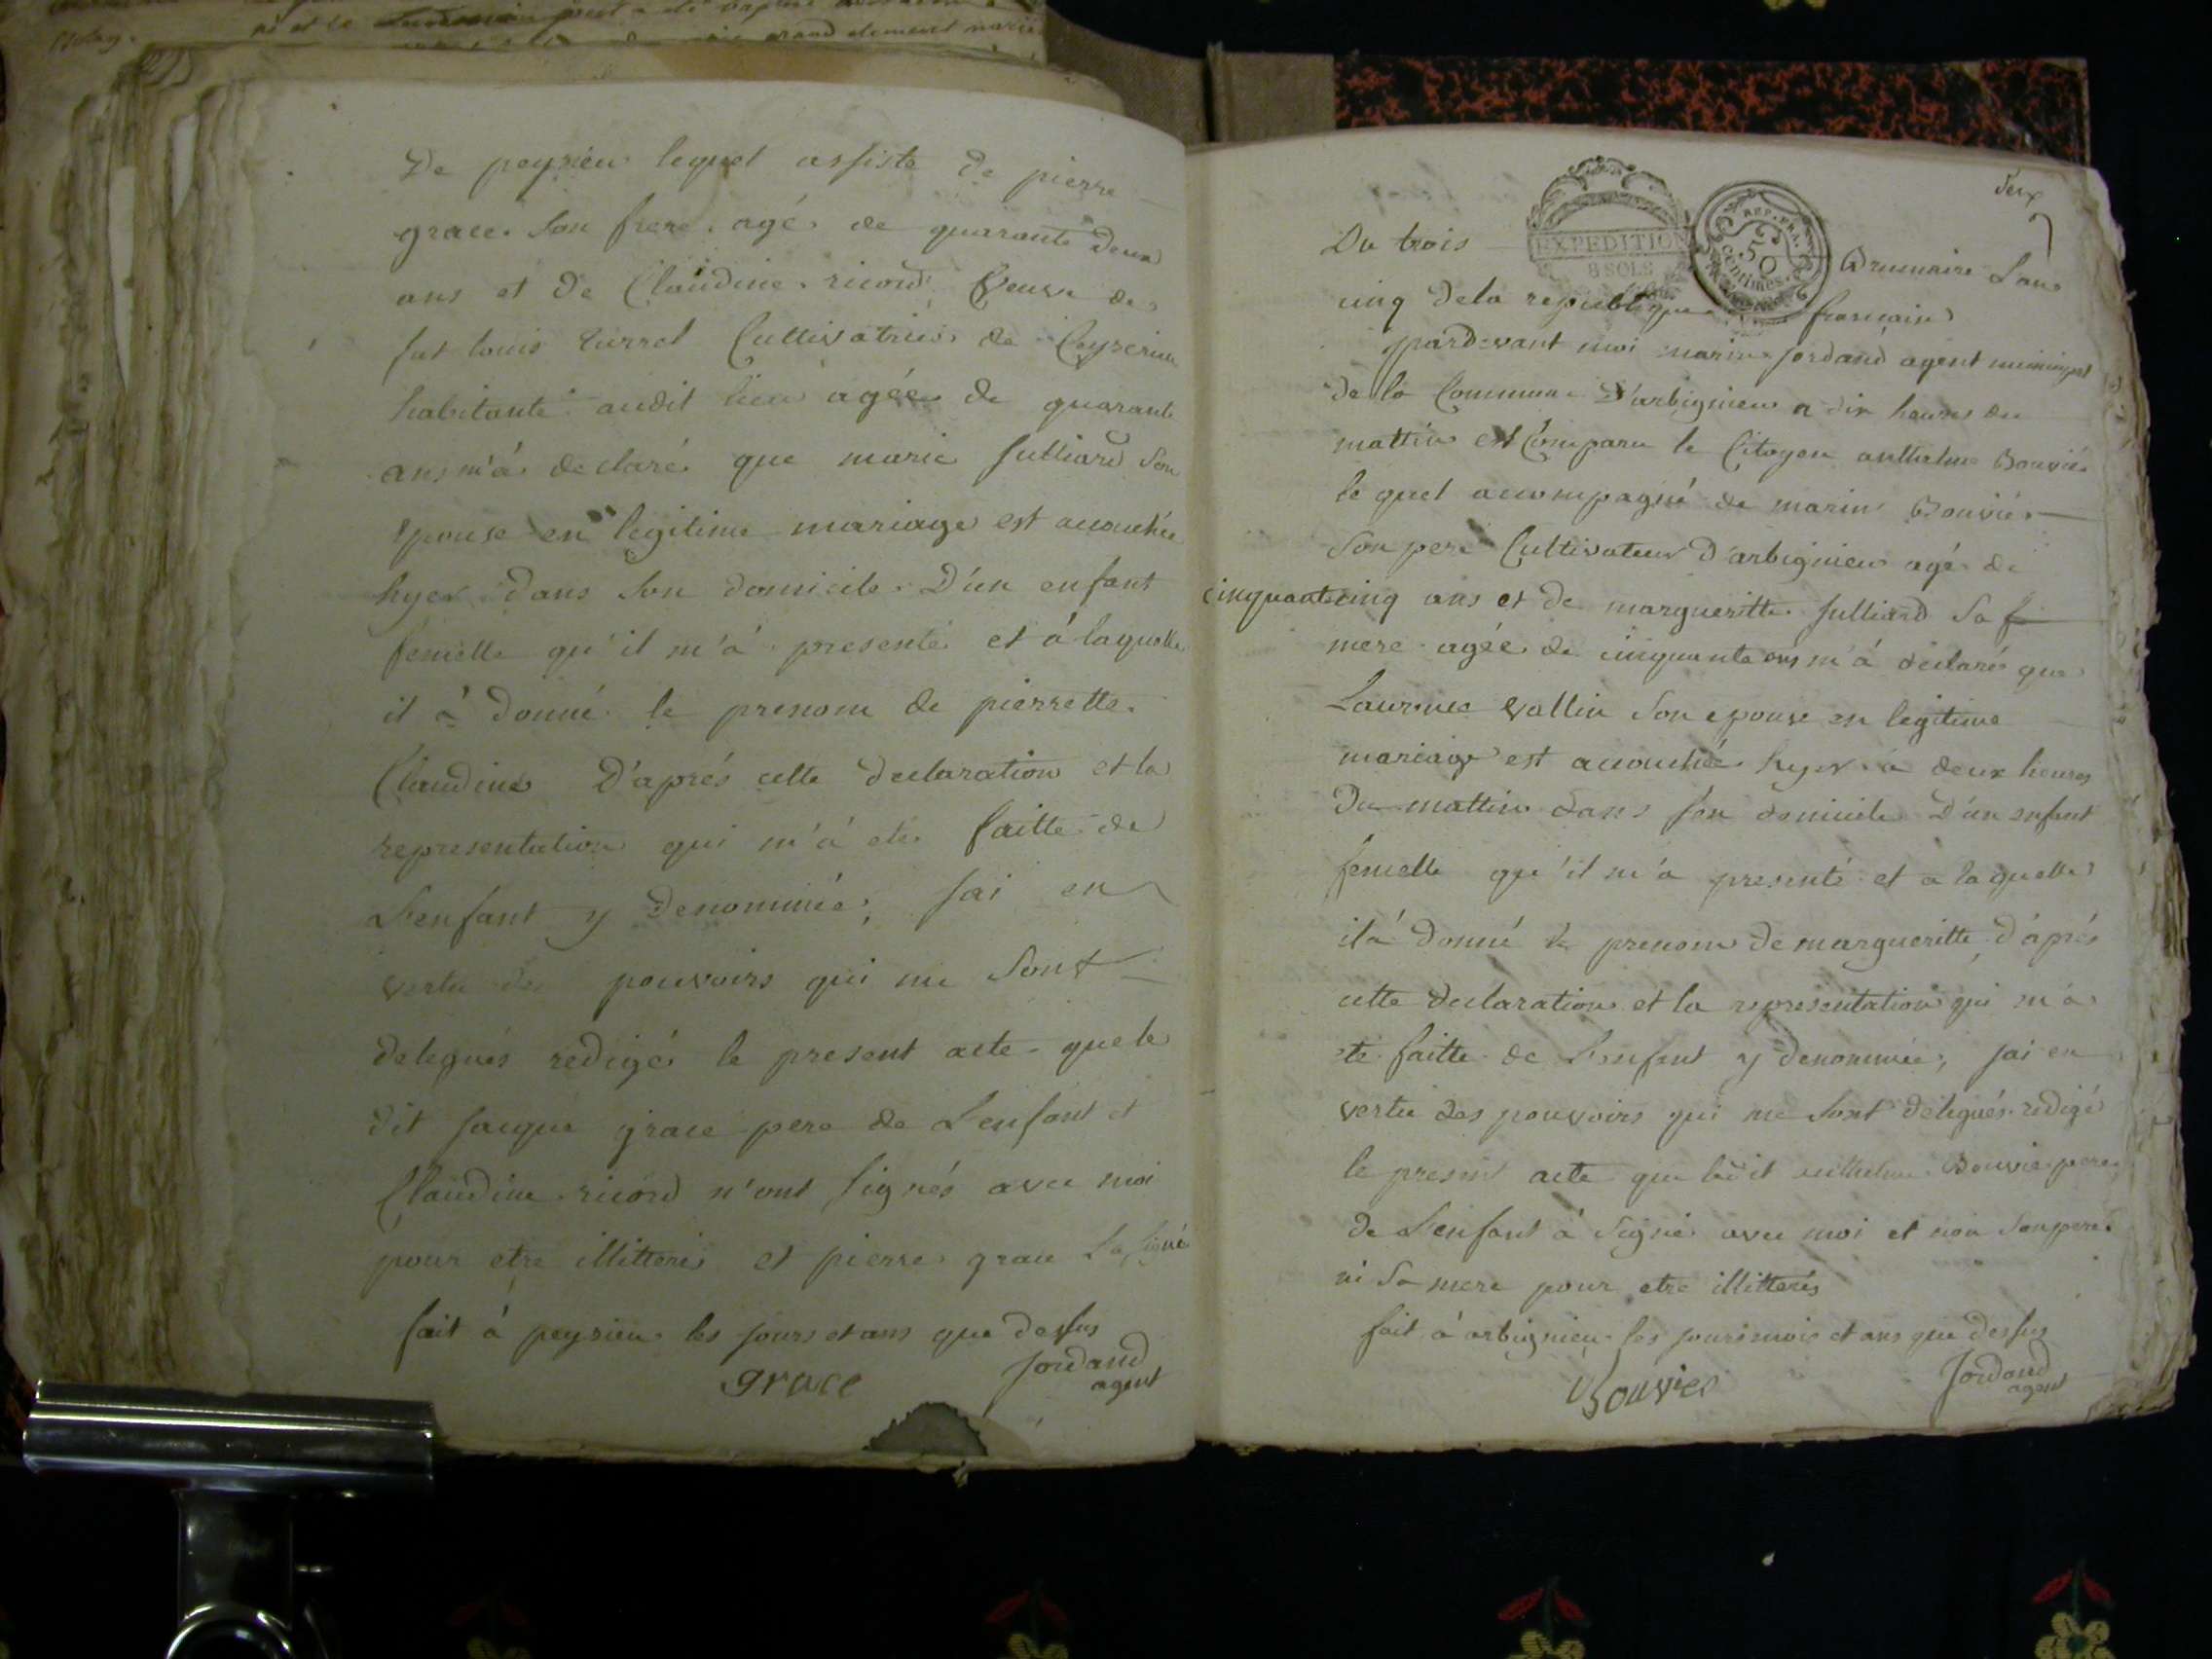 De peyrieu lequel assisté de pierre
grace son frere agé de quarante deux
ans et de Claudine ricord veuve de
fut louis turrel Cultivatrice de Ceyzerieu
habitante audit lieu agée de quarante
ans m'à declaré que marie Julliard son
epouse en legitime mariage est accouchée
hyer dans son domicile D'un enfant
femelle qu'il m'à presenté et à laquelle
il à donné le prenom de pierrette
Claudine D'après cette declaration et la
representation qui m'à eté faitte de
L'enfant y denommée; j'ai en
vertu des pouvoirs qui me sont
delegués redigé le present acte que le
dit jacque grace pere de L'enfant et
Claudine ricord n'ont signés avec moi
pour etre illitterés et pierre grace La signé
fait à peyrieu les jours et ans que dessus
grace Jordand
agent
deux
EXPEDITION
8 SOLS
REP. FRA.
50
centimes
Du trois Brumaire L'an
cinq de la republique francaise
pardevant moi marin jordand agent municipal
de la Commune D'arbignieu a dix heures du
mattin est Comparu le Citoyen anthelme Bouvié
le quel accompagné de marin Bouvié
son pere Cultivateur D'arbignieu agé de
cinquante cinq ans et de margueritte Julliard sa
mere agée de cinquante ans m'à declaré que
Laurence vallin son epouse en legitime
mariage est accouchée hyer à deux heures
Du mattin dans son domicile D'un enfant
femelle qu'il m'à presenté et à laquelle
il à donné le prenom de margueritte, d'àprés
cette declaration et la representation qui m'à
eté faitte de L'enfant y denommée, j'ai en
vertu des pouvoirs qui me sont delegués redigé
le present acte que ledit anthelme Bouvié pere
de L'enfant à signé avec moi et non son pere
ni sa mere pour etre illitterés
fait à arbignieu les jours mois et ans que dessus
Bouvier Jordand
agent